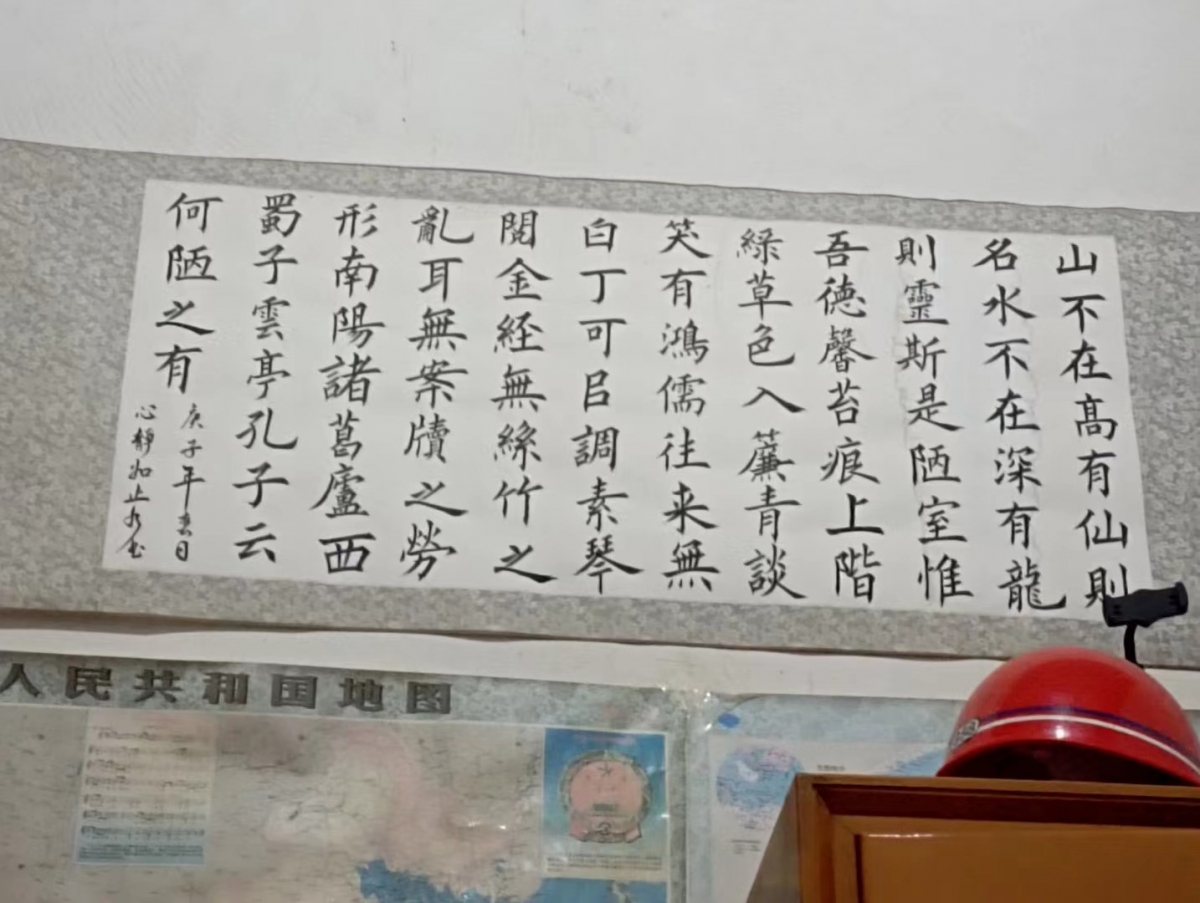 山不在高有仙則
名水不在深有龍
則靈斯是陋室惟
吾德馨苔痕上階
綠草色入簾青談
笑有鴻儒往来無
白丁可㠯調素琴
閱金経無絲竹之
亂耳無案牘之勞
形南陽諸葛廬西
蜀子雲亭孔子云
何陋之有
庚子年春日
心靜如止水書
人民共和国地图